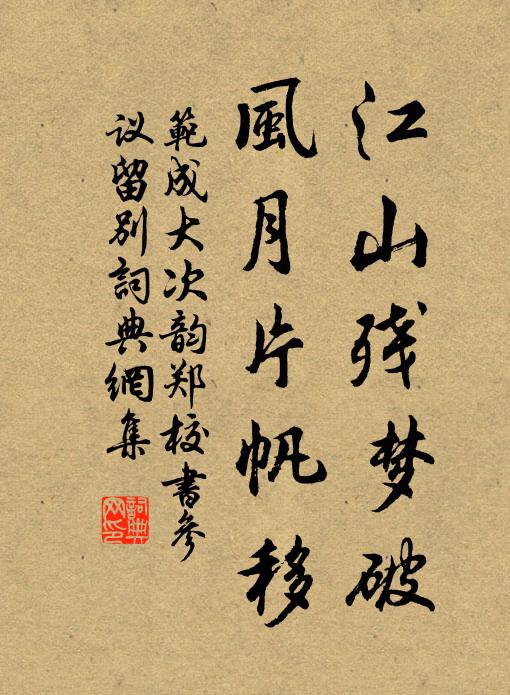 江山残梦破
風月片帆移
範成大次韵郑校書參
议留別詞典網集
詞典
网印